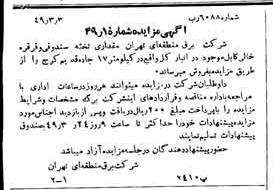 شماره ۶۰۸۸رب
۴۹ر۳ر۳
آگهی مزایده شماره ۱ر۴۹
شرکت برق منطقه‌ای تهران مقداری تخته صندوقی و قرقره
خالی کابل موجود در انبار کل واقع در کیلومتر ۱۷ جاده قدیم کرج را از
طریق مزایده بفروش میرساند
داوطلبان شرکت در مزایده میتوانند هر روز در ساعات اداری با
مراجعه باداره مناقصه و قراردادهای اینشرکت برگه مشخصات وشرایط
مزایده را با پرداخت مبلغ ۲۰۰ ریال دریافت و پس از بازدید اجناس مورد
مزایده پیشنهادات خود را حداکثر تا ساعت ۹ روز ۲۴ر۳ر۴۹ بصندوق
پیشنهادات تسلیم نمایند
حضور پیشنهاد دهندگان در جلسه مزایده آزاد میباشد
شرکت برق منطقه‌ای تهران
۲-۱
پ-۲۴۱۰